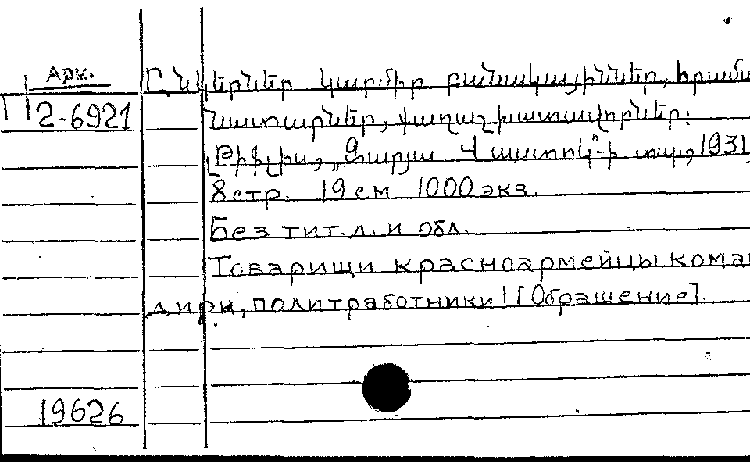 Арк.
П 2-6921
Ընկերներ կարմիր բանակայիններ, հրամա
նատարներ, քաղաշխատավորներ:
[Թիֆլիս, „Զարյա վաստոկ”-ի տպ., 1931]
8 стр. 19 см 1000 экз.
Без тит. л. и обл.
Товарищи красноармейцы коман
диры, политработники! [Обращение].
19626